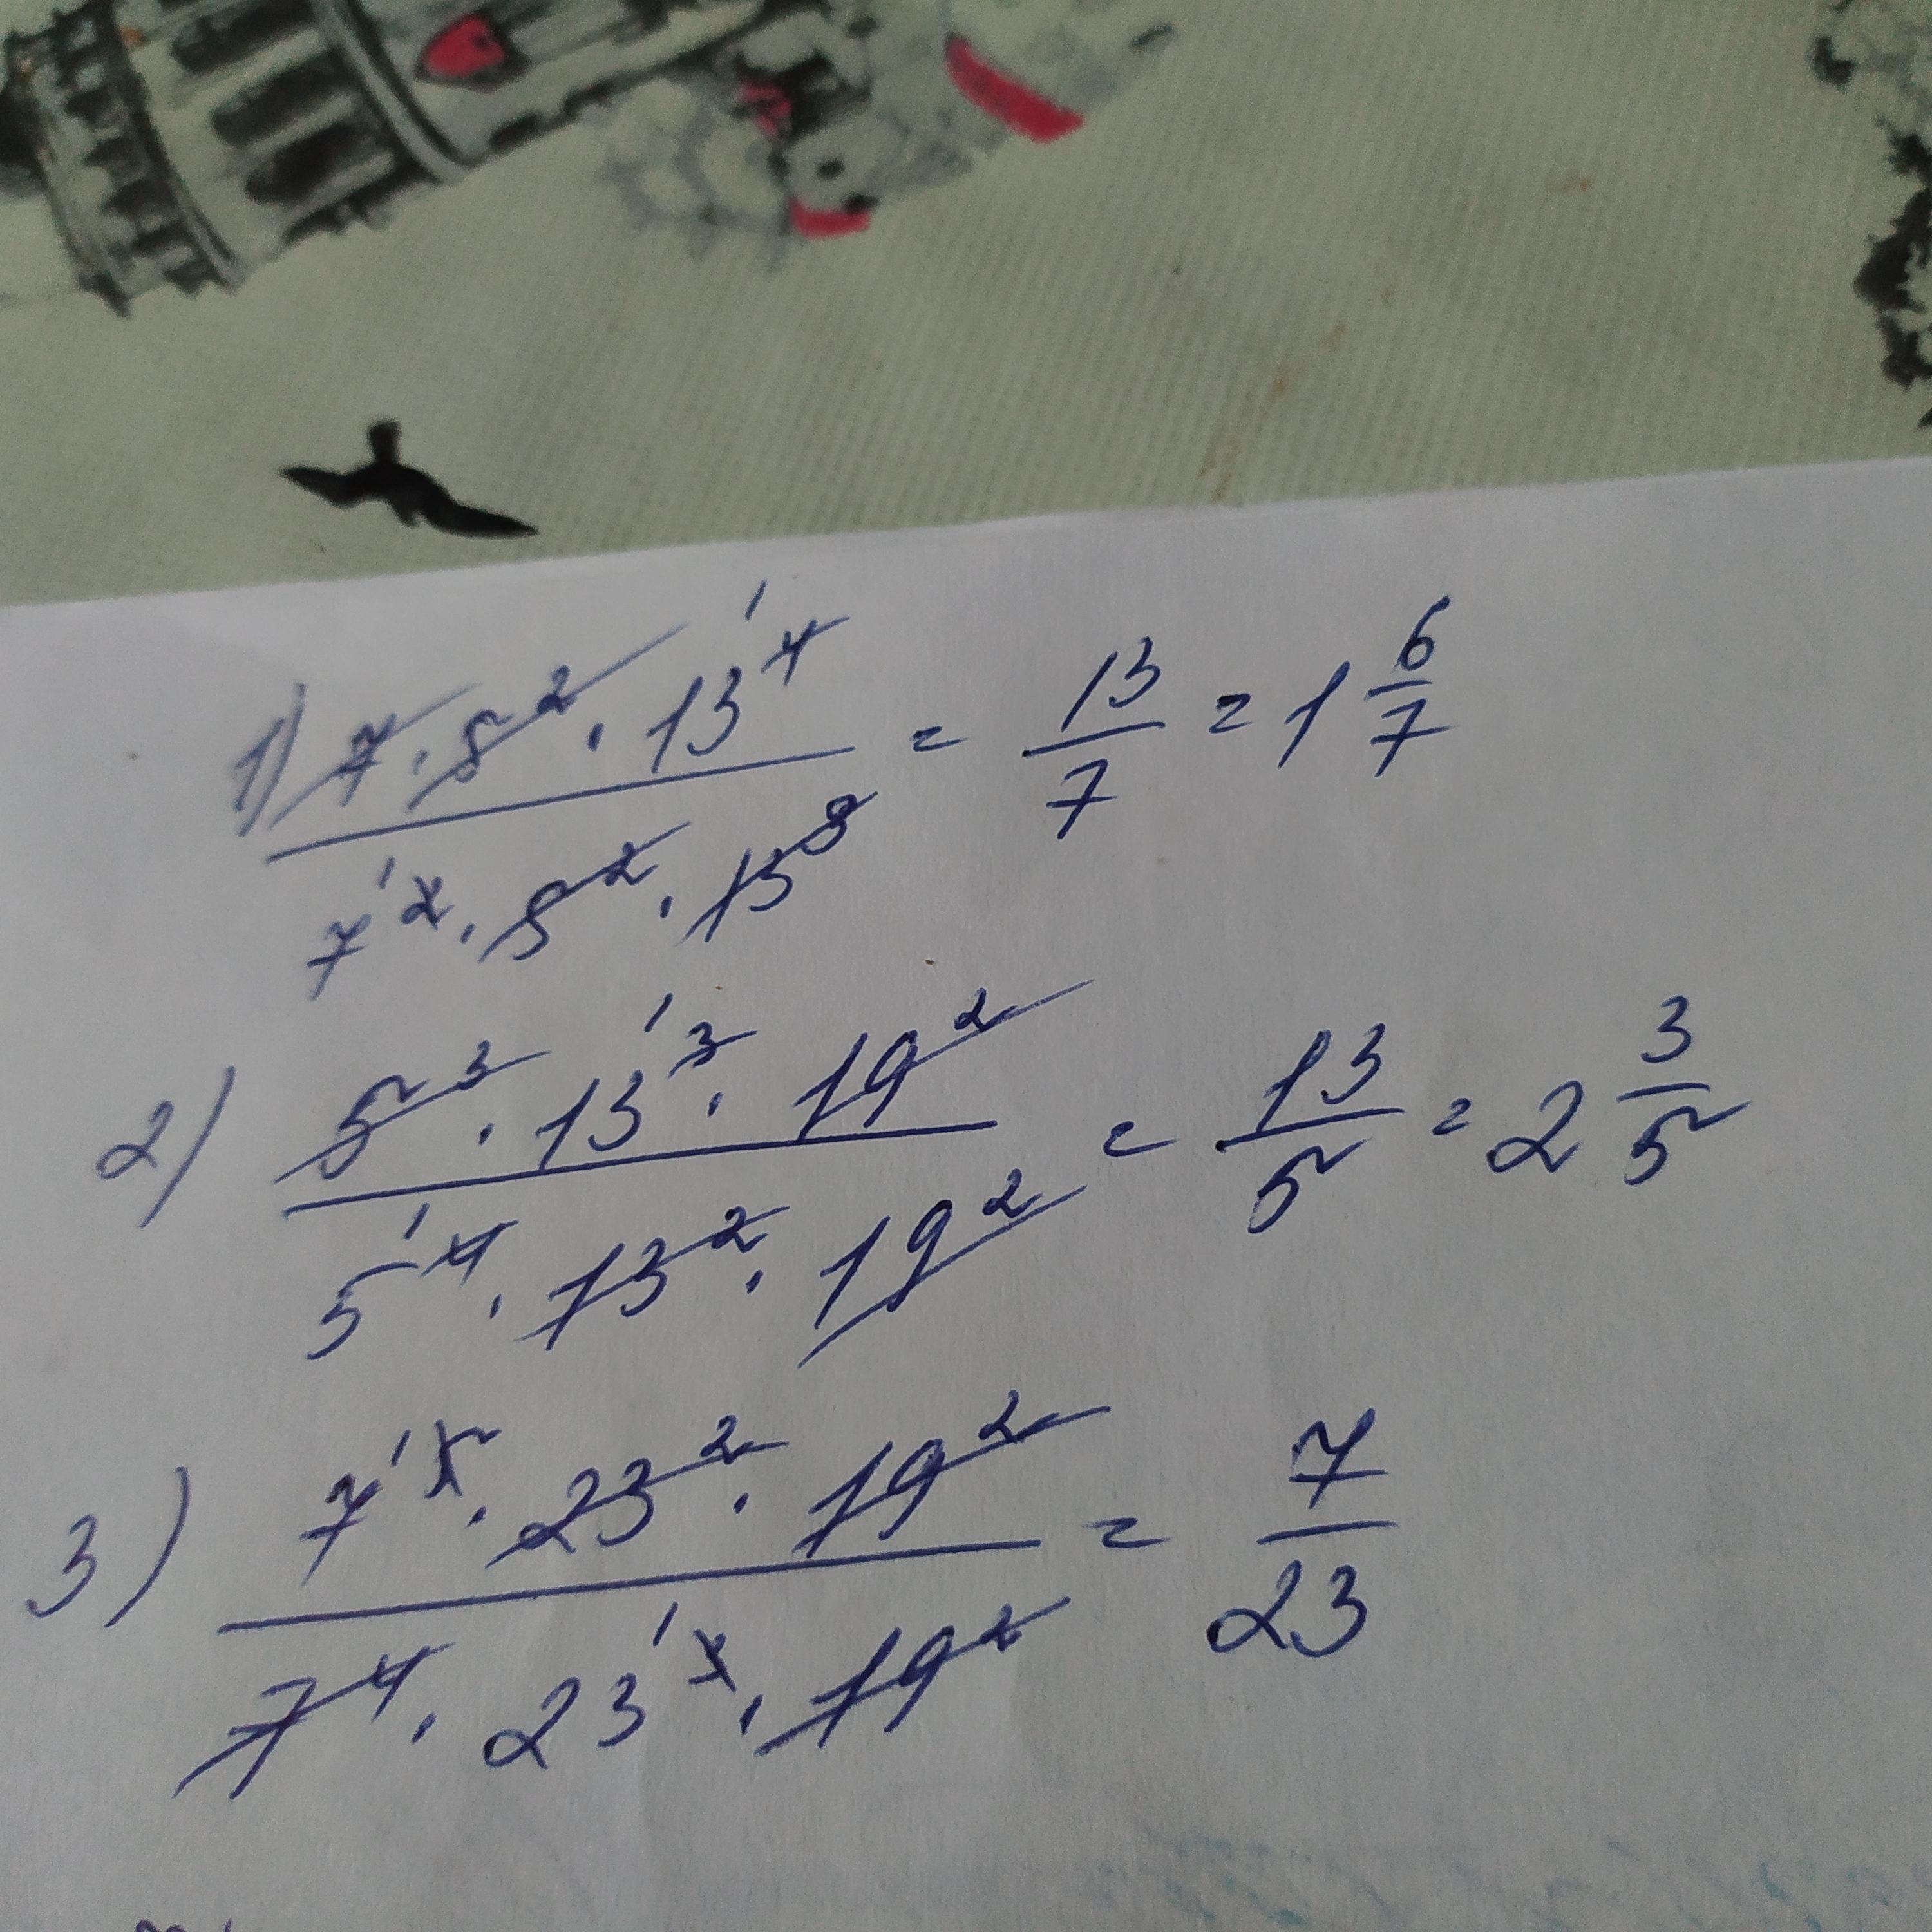 1) 7 · 5² · 13⁴ ¹ / 7² ¹ · 5² · 13³ = 13/7 = 1 6/7
2) 5³ · 13³ ¹ · 19² / 5⁴ ¹ · 13² · 19² = 13/5 = 2 3/5
3) 7⁵ ¹ · 23² · 19² / 7⁴ · 23³ ¹ · 19² = 7/23